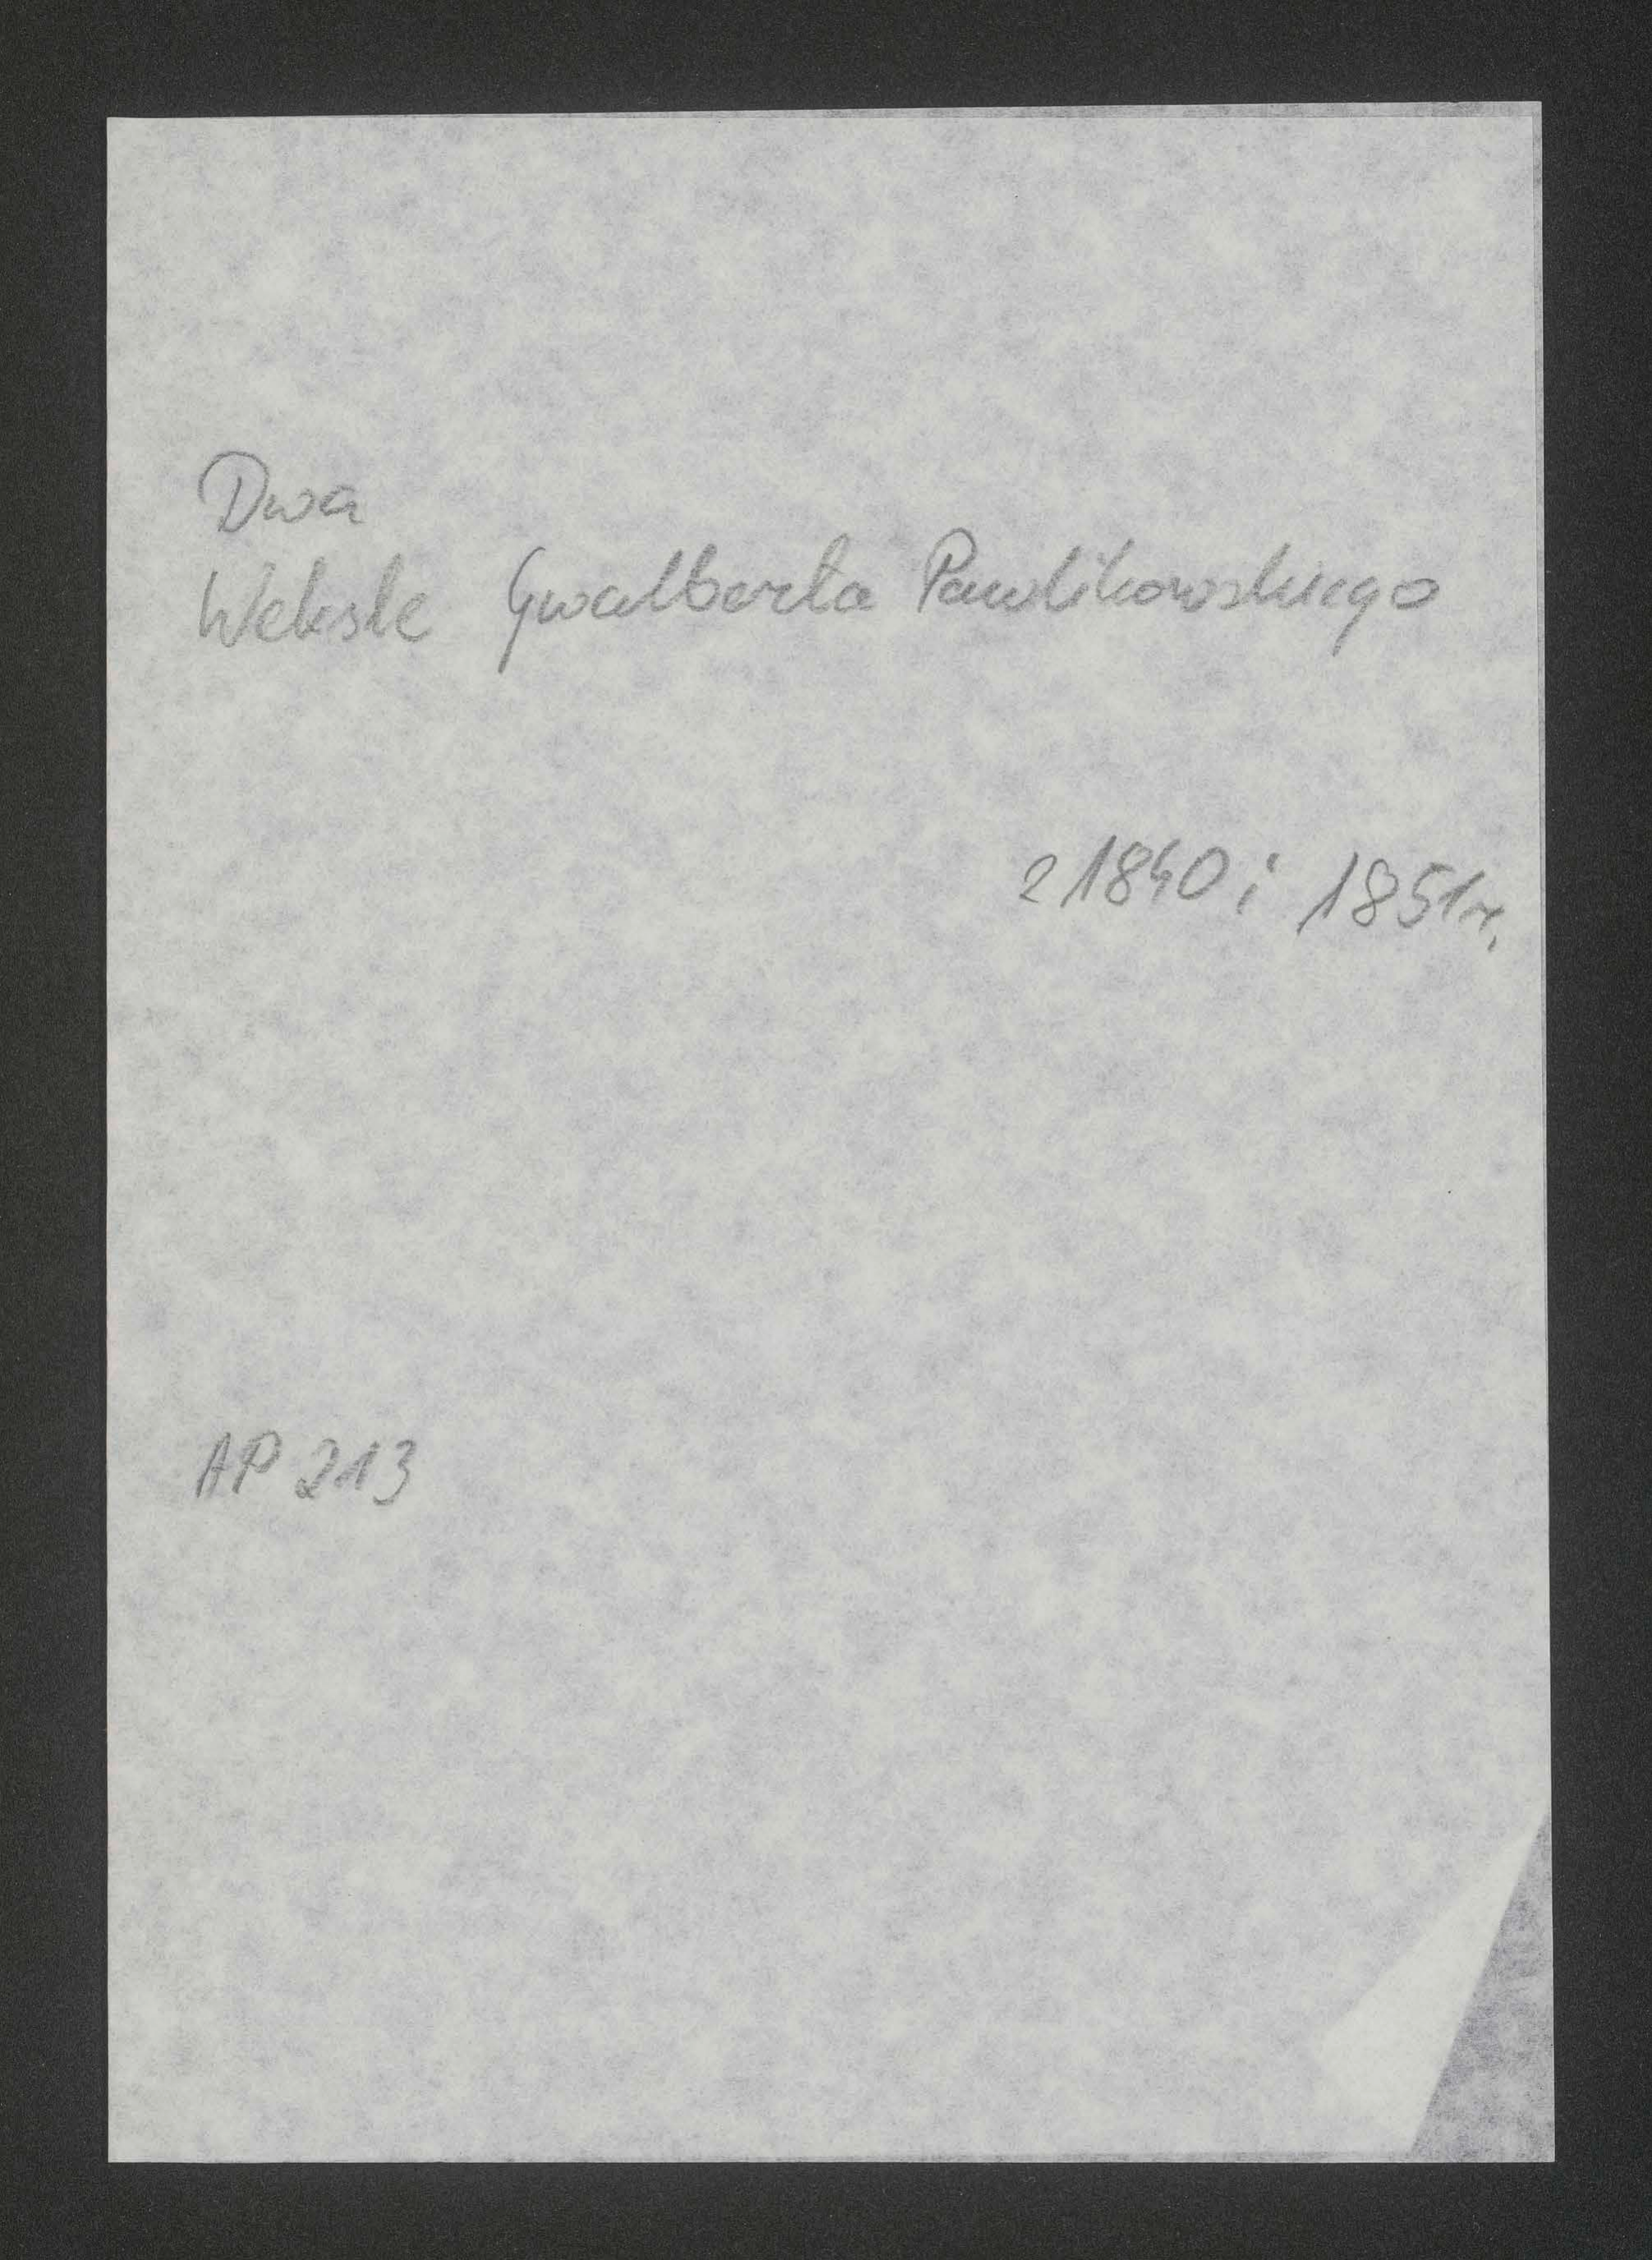 Dwa
Weksle Gwalberta Pawlikowskiego
z 1840 i 1851r.
AP 213